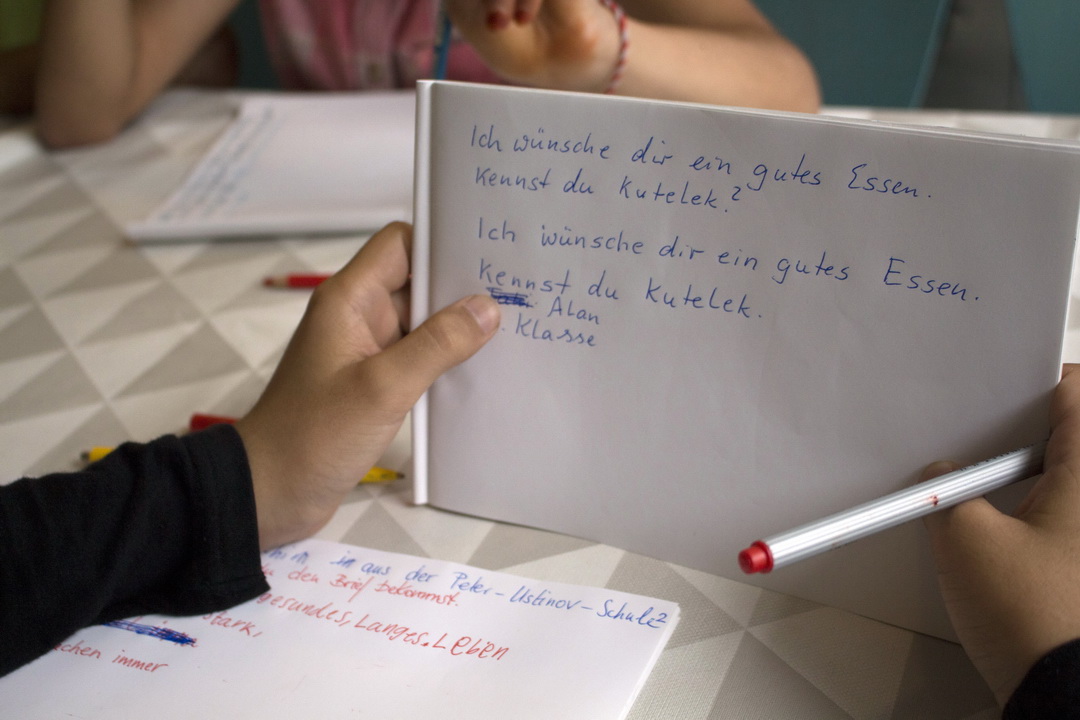 Ich wünsche dir ein gutes Essen.
Kennst du Kutelek?
Ich wünsche dir ein gutes Essen.
Kennst du Kutelek.
Alan
. Klasse
in aus der Peter-Ustinov-Schule
den Brief bekommst.
gesundes, Langes. Leben
stark,
immer